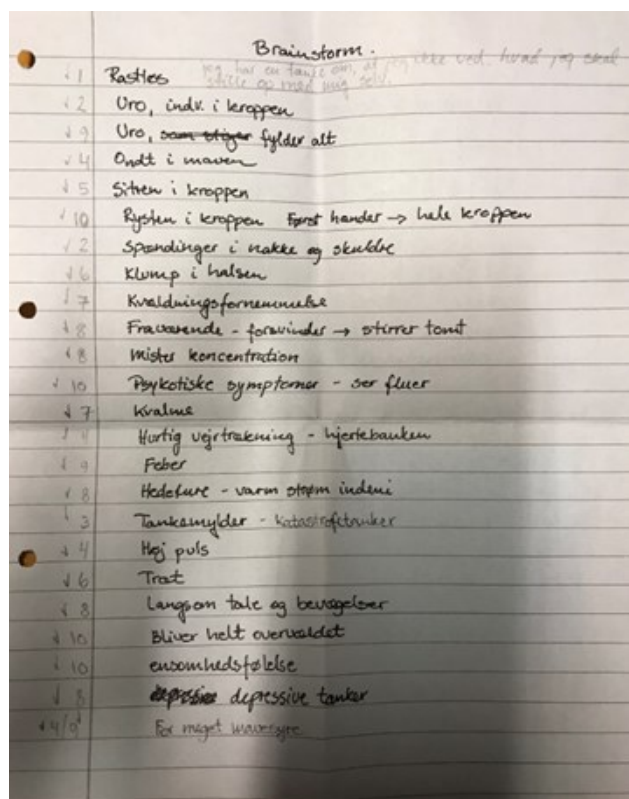 Brainstorm.
jeg har en tanke om, at jeg ikke ved, hvad jeg skal
stille op med mig selv.
↓ 1 Rastløs
↓ 2 Uro, indv. i kroppen
↓ 9 Uro, som stiger fylder alt
↓ 4 Ondt i maven
↓ 5 Sitren i kroppen
↓ 10 Rysten i kroppen Først hænder → hele kroppen
↓ 2 Spændinger i nakke og skuldre
↓ 6 Klump i halsen
↓ 7 Kvældningsfornemmelse
↓ 8 Fraværende - forsvinder → stirrer tomt
↓ 8 Mister koncentration
↓ 10 Psykotiske symptomer - ser fluer
↓ 7 Kvalme
↓ 4 Hurtig vejrtrækning - hjertebanken
↓ 9 Feber
↓ 8 Hedeture - varm strøm indeni
↓ 3 Tankemylder - katastrofetanker
↓ 4 Høj puls
↓ 6 Træt
↓ 8 Langsom tale og bevægelser
↓ 10 Bliver helt overvældet
↓ 10 ensomhedsfølelse
↓ 8 depressive tanker
↓ 4/9 For meget mavesyre